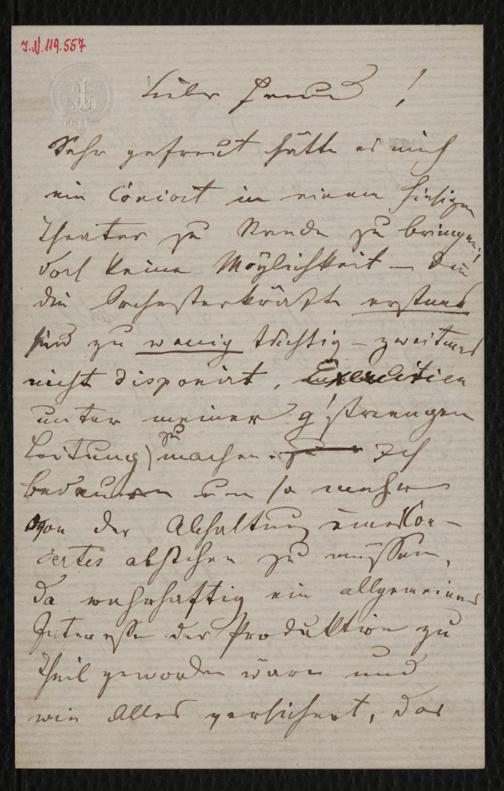 J.N. 119.557
Lieber Freund!
Sehr gefreut hätte es mich
ein Concert in einem hiesigen
Theater zu Stande zu bringen;
doch keine Möglichkeit — denn
die Orchesterkräfte erstens
sind zu wenig tüchtig — zweitens
nicht disponirt, Exercitien
unter meiner g'strengen
Leitung) zu machen. Ich
bedauere um so mehr
von der Abhaltung eines Con-
certes abstehen zu müssen,
da wahrhaftig ein allgemeines
Interesse der Produktion zu
Theil geworden wäre und
wie Alles versichert, das